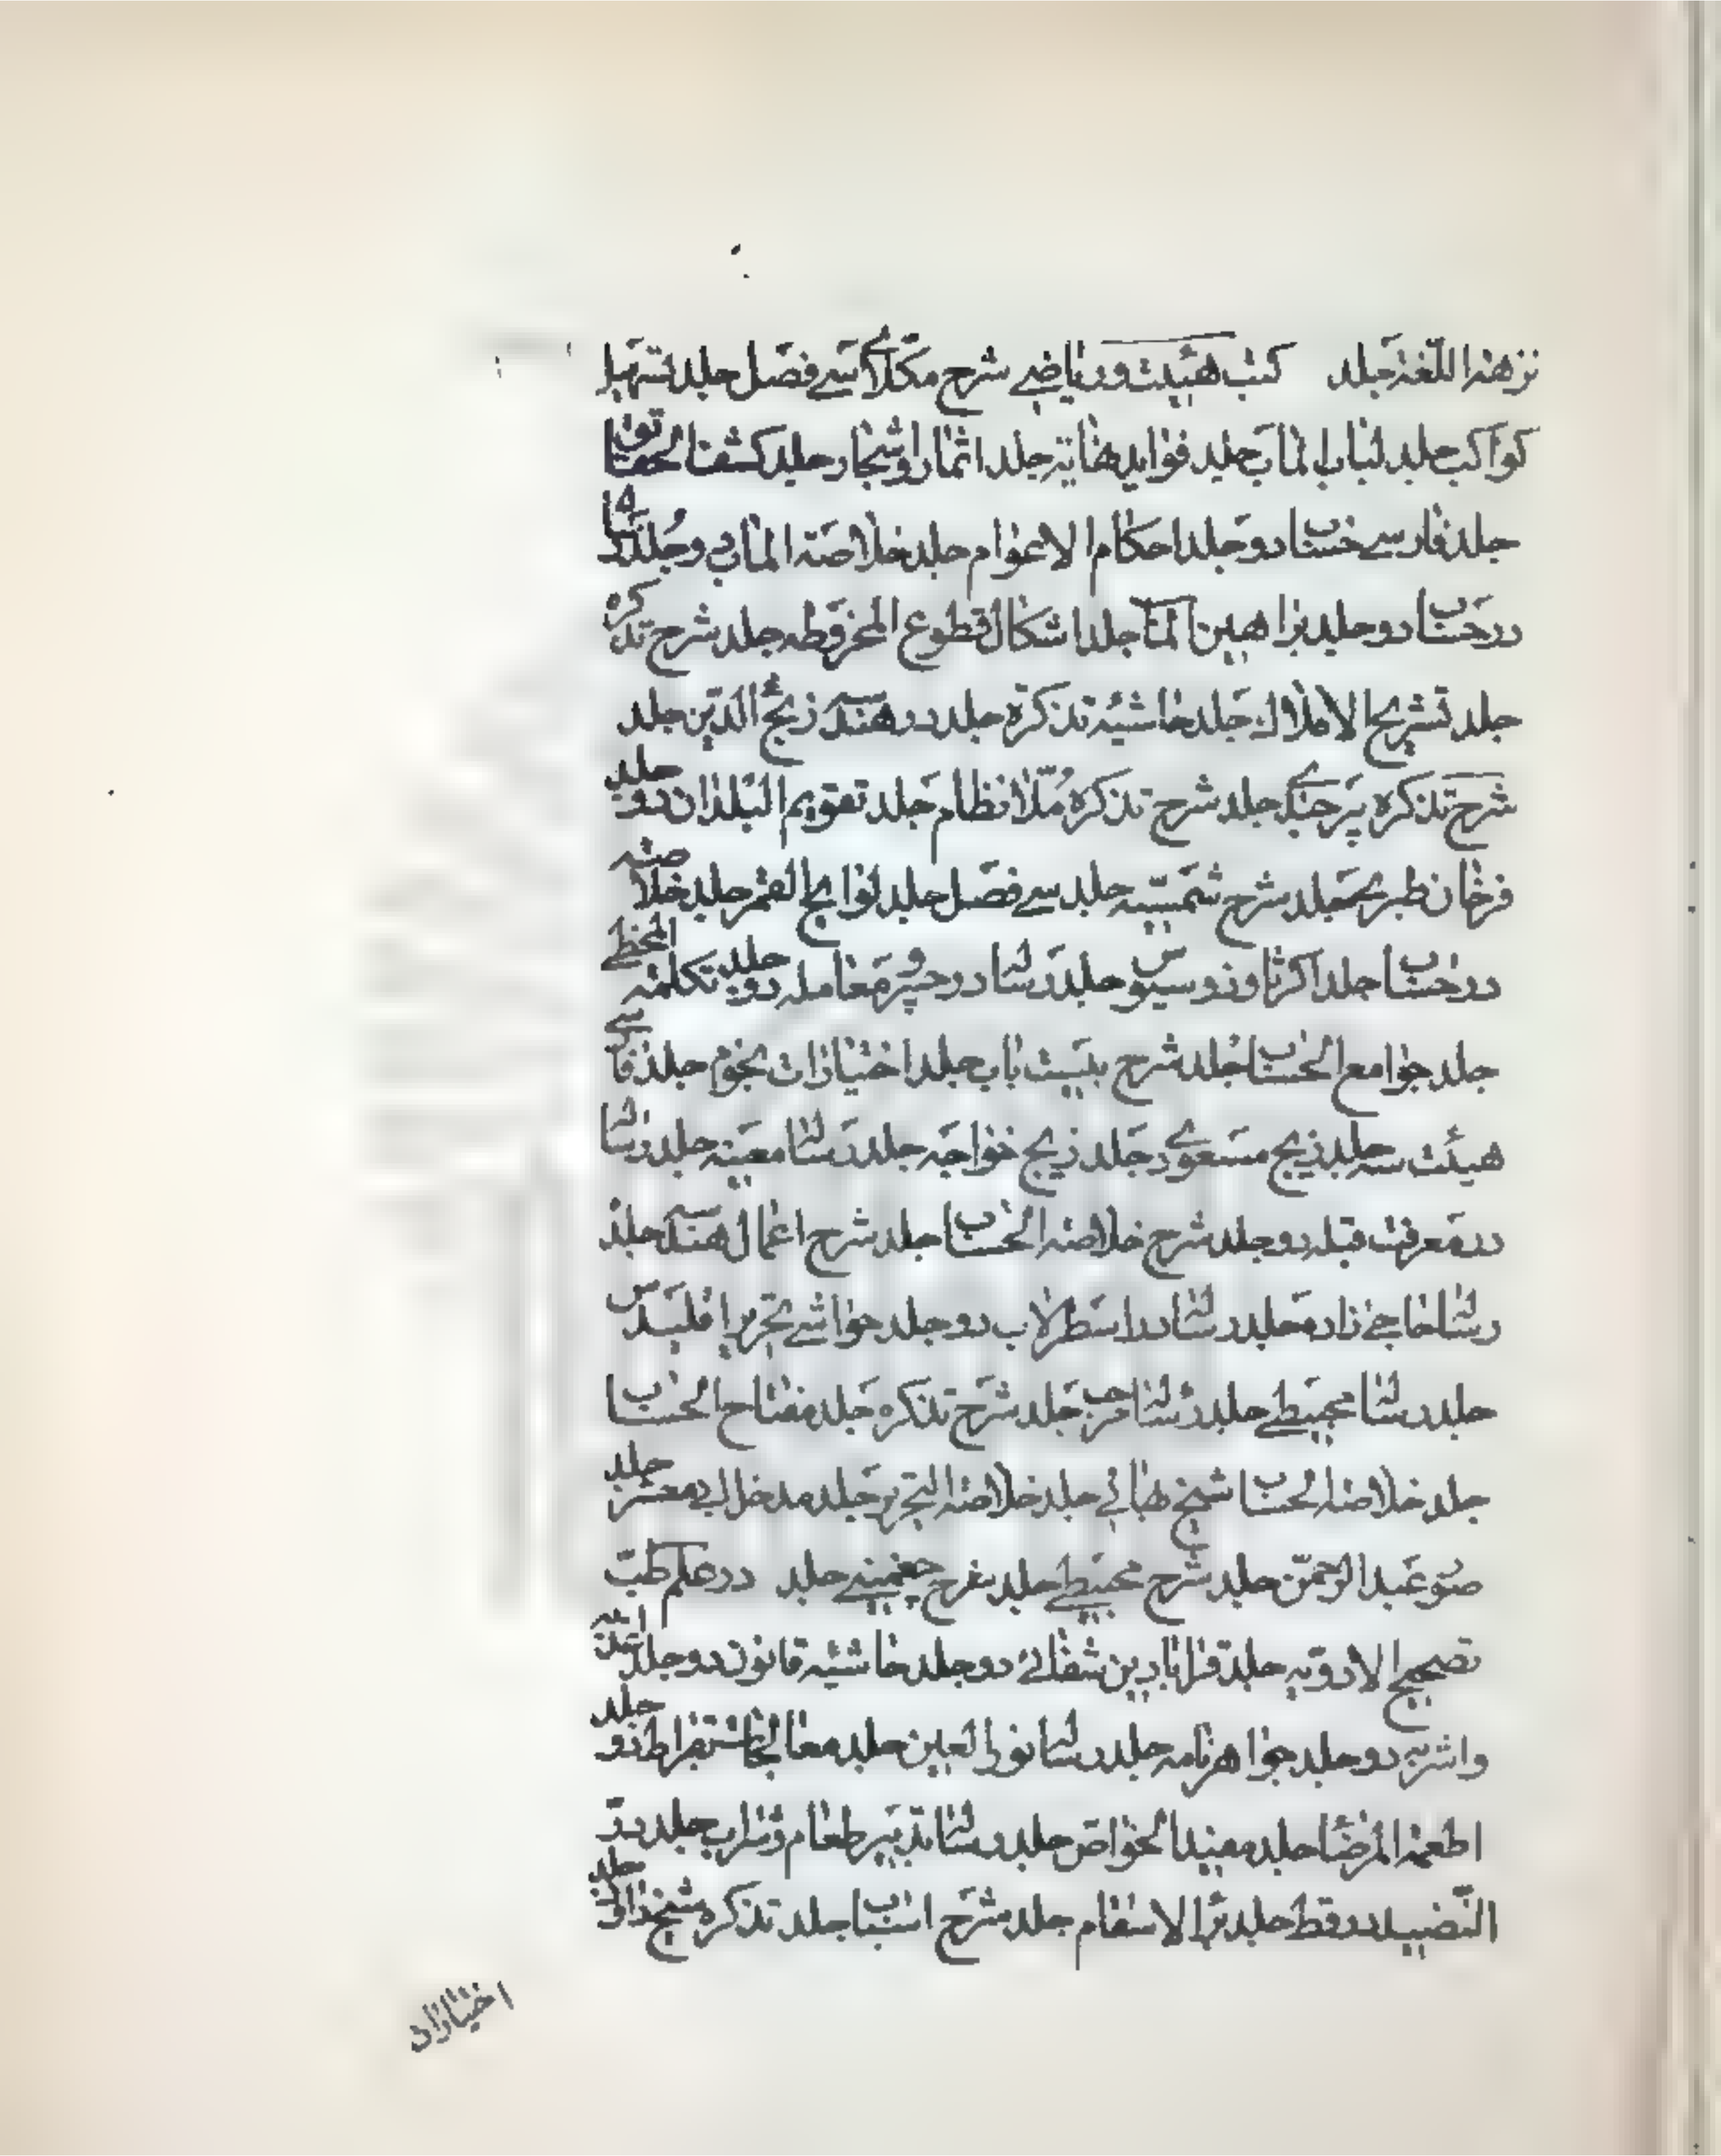 نزهة اللغة جلد کتب هیئت و ریاضے شرح مکلا سے فصل جلد تسهیل
کواکب جلد لباب جلد فواید بهائیه جلد اثمار و اشجار جلد کشف الحقایق
جلد فارسے حساب دو جلد احکام الاعوام جلد خلاصة دو جلد رساله
در حساب دو جلد براهین جلد اشکال قطوع المخروطه جلد شرح تذکره
جلد تشریح الافلاک جلد حاشیئه تذکره جلد در هندسه زیج الدین جلد
شرح تذکره بیرجندے جلد شرح تذکره ملا نظام جلد تقویم البلدان دو جلد
فرخان طبرے جلد شرح شمسیه جلد سے فصل جلد لوایح القمر جلد خلاصه
در حساب جلد اکرثاوذوسیوس جلد رساله در جبر و معامله دو جلد تکلمه المجطے
جلد جوامع الحساب جلد شرح بیست باب جلد اختیارات نجوم جلد فارسے
هیئت سه جلد زیج مسعودے جلد زیج خواجه جلد رساله معینه جلد رساله
در معرفت قبله دو جلد شرح خلاصه الحساب جلد شرح اعمال هندسه جلد
رساله حاجے زاده جلد رساله در اسطرلاب دو جلد حواشے تحریر اقلیدس
جلد رساله مجیطے جلد رساله جلد شرح تذکره جلد مفتاح الحساب
جلد خلاصه الحساب شیخ بهائے جلد خلاصه التحریر جلد مدخل ابے معشر جلد
صور عبدالرحمن جلد شرح مجیطے جلد شرح چغمینے جلد در علم طب
تصحیح الادویه جلد قرابادین شفائے دو جلد حاشیئه قانون دو جلد اغذیه
و اشربه دو جلد جواهرنامه جلد رساله نور العین جلد معالجات بقراط دو جلد
اطعمة المرضا جلد مفید الخواص جلد رساله تدبیر طعام و شراب جلد در
النضید در قط جلد برا الاسقام جلد شرح اسباب جلد تذکره شیخ جلد
اختیارات